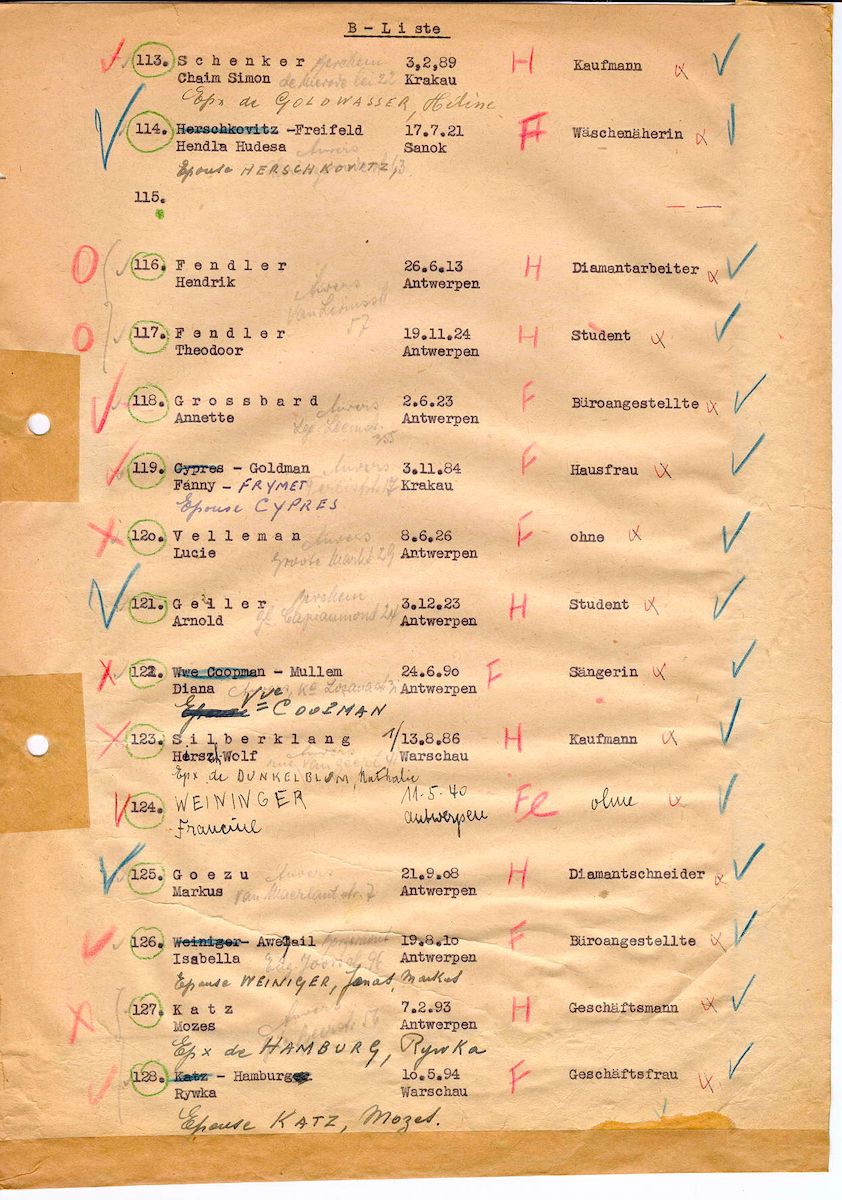 B - L i s t e
113. S c h e n k e r Berchem 3,2,89 H Kaufmann
Chaim Simon de Merode lei 22 Krakau
Epx de GOLDWASSER, Hélène
114. Herschkovitz -Freifeld 17.7.21 F Wäschenäherin
Hendla Hudesa Anvers Sanok
Epouse HERSCHKOVITZ,
115.
116. F e n d l e r 26.6.13 H Diamantarbeiter
Hendrik Anvers Antwerpen
57
117. F e n d l e r 19.11.24 H Student
Theodoor Antwerpen
118. G r o s s b a r d 2.6.23 F Büroangestellte
Annette Anvers Antwerpen
119. Cypres - Goldman Anvers 3.11.84 F Hausfrau
Fanny - FRYMET Krakau
Epouse CYPRES
12o. V e l l e m a n Anvers 8.6.26 F ohne
Lucie Groote Markt 29 Antwerpen
121. G e l l e r Berchem 3.12.23 H Student
Arnold Antwerpen
122. Wwe Coopman - Mullem 24.6.9o F Sängerin
Diana Antwerpen
Epouse Vve = COOZMAN
123. S i l b e r k l a n g 1/13.8.86 H Kaufmann
Herszl Wolf Anvers Warschau
Epx de DUNKELBLUM, Nathalie
124. WEININGER 11-5-40 Fe ohne
Francine Antwerpen
125. G o e z u Anvers 21.9.o8 H Diamantschneider
Markus Van Maerlant str. 7 Antwerpen
126. Weiniger- Awegail 19.8.1o F Büroangestellte
Isabella Antwerpen
Epouse WEINIGER, Jonas, Markus
127. K a t z 7.2.93 H Geschäftsmann
Mozes Anvers Antwerpen
Epx de HAMBURG, Rywka
128. Katz - Hamburg 1o.5.94 F Geschäftsfrau
Rywka Warschau
Epouse KATZ, Mozes.